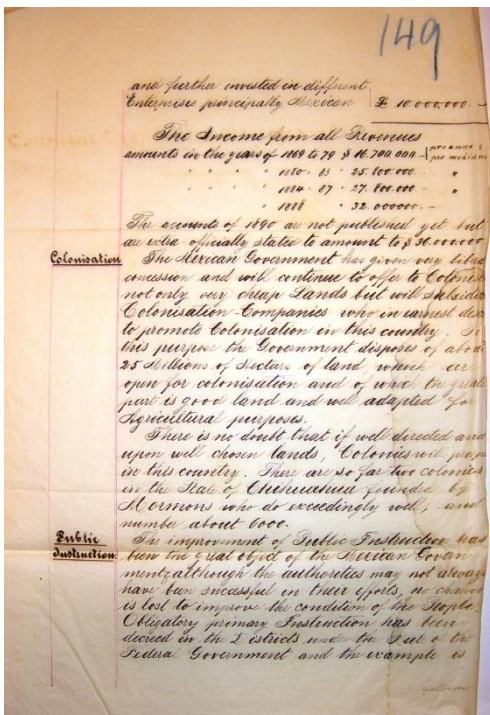 149
and further invested in different
Enterprises principally Mexican £ 10.000.000.–
The Income from all Revenues
amounts in the years of 1869 to 79 $ 16.700.000 – pro anno &
pro medium
" " " " 1880 . 83 " 25.800.000 – "
" " " " 1884 . 87 " 27.800.000 – "
1888 " 32.000000. –
The accounts of 1890 are not published yet but
are extra officially stated to amount to $ 36.000000
Colonisation
The Mexican Government has given very libera
concession and will continue to offer to Colonist
not only very cheap Lands but will subsidize
Colonisation-Companies who in earnest desi
to promote Colonisation in this country.
this purpose the Government disposes of about
25 Millions of Hectars of land, which are
open for colonisation and of which the greate
part is good land and well adapted for
Agricultural purposes.
There is no doubt that if well directed and
upon well chosen lands, Colonies will prosp
in this country. There are so far two colonies
in the State of Chihuahua founded by
Mormons who do exceedingly well, and
number about 6000.
Public
Instruction.
The improvement of Public Instruction has
been the great object of the Mexican Govern-
ment & although the authorities may not always
have been successful in their efforts, no chance
is lost to improve the condition of the People
Obligatory primary Instruction has been
decreed in the Districts under the
Federal Government and the example is